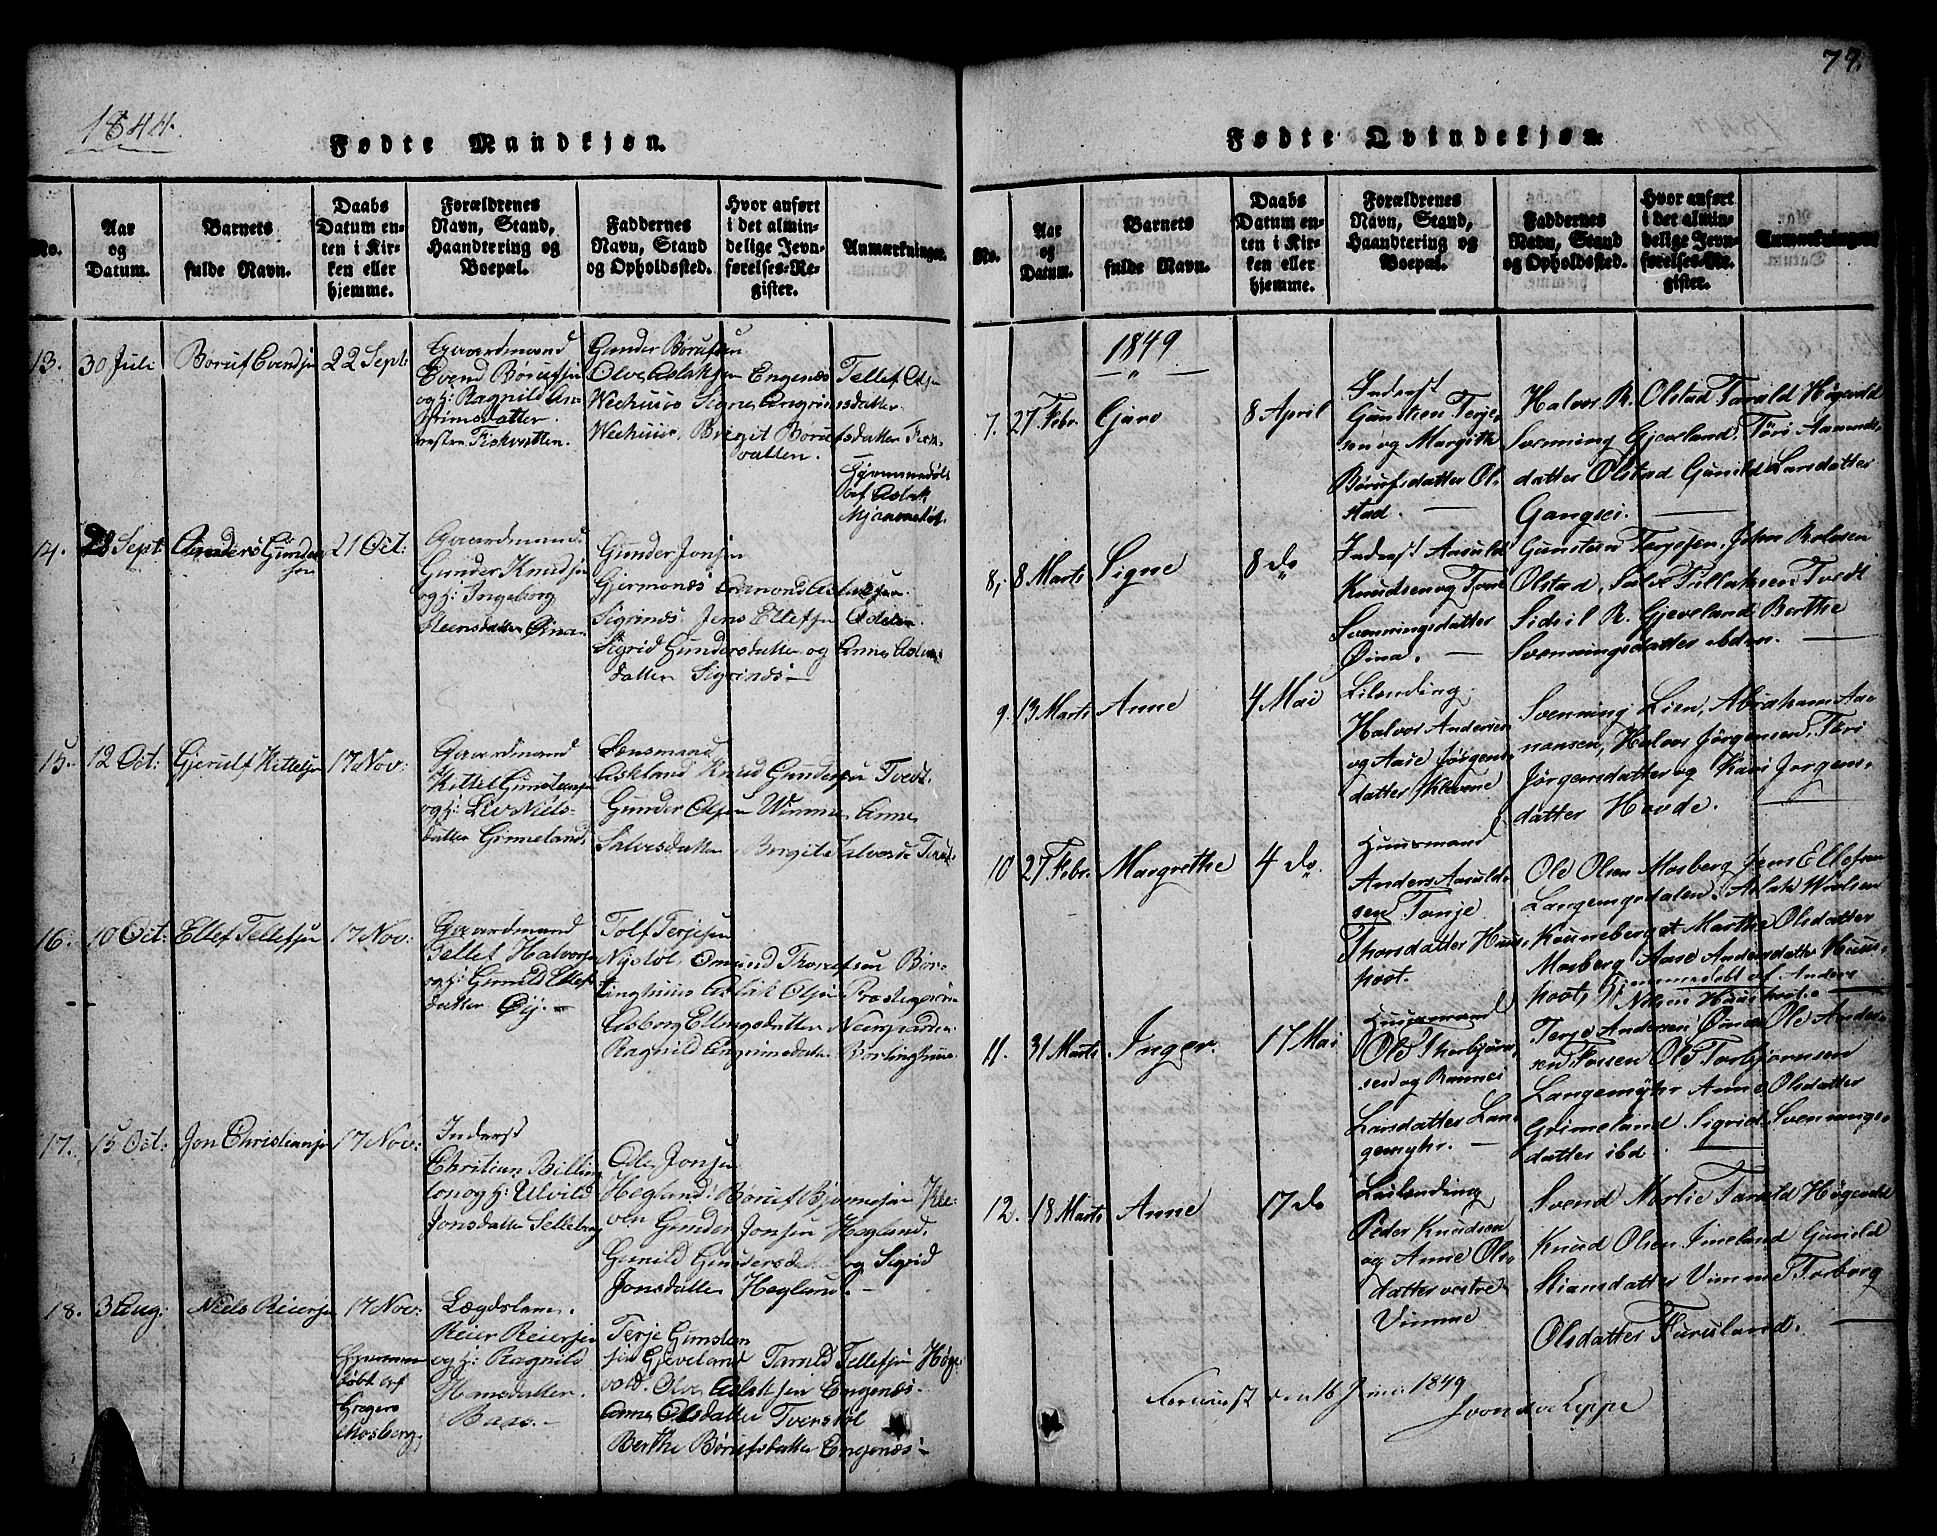 1844.
Fødte Mandkjøn.
No.
Aar og Datum.
Barnets fulde Navn.
Daabs Datum enten i Kirken eller hjemme.
Forældrenes Navn, Stand, Haandtering og Boepæl.
Faddernes Navn, Stand og Opholdssted.
Hvor anført i det almindelige Jevnførelses-Register.
Anmærkninger.
13. 30 Juli Børuf Evendsen 22 Sept:
Gaardmand
Evend Børufsen
og h: Ragnild
Fiskvatten.
Gunder Børufsen
Olve Aslaksen Engenæs Tellef Olsen
Signe Angrimsdatter
Brigit Børufsdatter
vatten.
Hjemmedøbt
af Aslak
14. 28 Sept: Anders Gunder
sen
21 Oct:
Gaardmand
Gunder Knudsen
og h: Ingeborg
Steensdatter Øina.
Gunder Jonsen
Gjermonæs Aamond Aslaksen
Sigrinds Jens Ellefsen
Sigrid Gundersdatter og Anne
datter Sigrinds
15. 12 Oct: Gjerulf Kittelsen 17 Nov:
Gaardmand
Kittel Gunsteinsen
og h: Liv Niels-
datter Grimeland
Lensmand
Askland Knud Gundersen Tvedt
Gunder Olsen Wimme, Anne
Salvesdatter Birgit Halvorsd:
16. 10 Oct: Ellef Tellefsen 17 Nov:
Gaardmand
Tellef Halvorsen
og h: Gunild Ellefs
datter Øij.
Tolf Terjesen
Nystøl Omund
linghuus Aslak Olsen
Asborg Ellingsdatter
Ragnild Angrimsdatter
17. 15 Oct: Jon Christiansen 17 Nov:
Inderst
Christian Billing
ton og h: Ulvild
Jonsdatter Selleberg
Ole Jonsen
Hegland: Børuf Bjornesen Kle-
ven Gunder Jonsen Hegland.
Gunild Gundersdatter og Sigrid
Jonsdatter Hegland.
18. 3 Aug: Niels Reiersen 17 Nov:
Hjemme
døbt af
Gregers
Mosberg
Lægdslem.
Reier Reiersen
og h: Ragnild
Hansdatter.
Baas.
Terje Gunsten
sen Gjeveland Tarald Tellefsen Høge
vold. Olve Aslaksen Engenæs.
Anne Olsdatter Tverstøl
Berthe Børufsdatter Engenæs
77.
Fødte Qvindekjøn
No.
Aar og Datum.
Barnets fulde Navn.
Daabs Datum enten i Kirken eller hjemme.
Forældrenes Navn, Stand, Haandtering og Boepæl.
Faddernes Navn, Stand og Opholdssted.
Hvor anført i det almindelige Jevnførelses-Register.
Anmærkninger
1849
7. 27 Febr. Guro 8 April
Inderst
Gunsten Terje-
sen og Margith
Børufsdatter Ol-
stad.
Halvor R. Olstad Tarald Høgevold
Svenning Gjeveland, Tøri Aamunds-
datter Olstad Gunild Larsdatter
Gangsei.
8. 8 Marts Signe 8 do
Inderst Aasuld
Knudsen og Tone
Svenningsdatter
Øina.
Gunstein Tergesen, John Rolvsen
Olstad, Salve Tellaksen Tvedt
Sidsil R. Gjeveland Berthe
Svenningsdatter ibdm.
9. 13 Marts Anne 4 Mai
Leilending
Halvor Andersen
og Aase Jørgens-
datter Klevene
Svenning Lien, Abraham Aa-
nansen, Halvor Jørgensen, Tøri
Jørgensdatter og Kari Jørgens-
datter Hovde.
10 27 Febr. Margrethe 4 do.
Huusmand
Anders Aasuld-
sen Tonje
Thorsdatter Huus-
hovt.
Ole Olsen Mosberg Jens Ellefsen
Langemyrdalen, Aslak
Marthe Olsdatter
Mosberg Aase Andersdatter Huus-
hovt, Hjemmedøbt af Anders
11. 31 Marts Inger. 17 Mai
Huusmand
Ole Thorbjørn-
sen og Rannei
Larsdatter Lan-
gemyhr.
Terje Andersen Øina Ole Anders-
sen Fossen Ole Torbjørnsen
Langemyhr Anne Olsdatter
Grimeland Sigrid Svennings-
datter ibd.
12. 18 Marts Anne 17 do
Leilending
Peder Knudsen
og Anne Ols-
datter vestre
Vimme
Svend Norlie Tarald Høgevold
Knud Olsen Imeland Gunild
Stiansdatter Vimme Torborg
Olsdatter Furuland.
den 16 Juni 1849